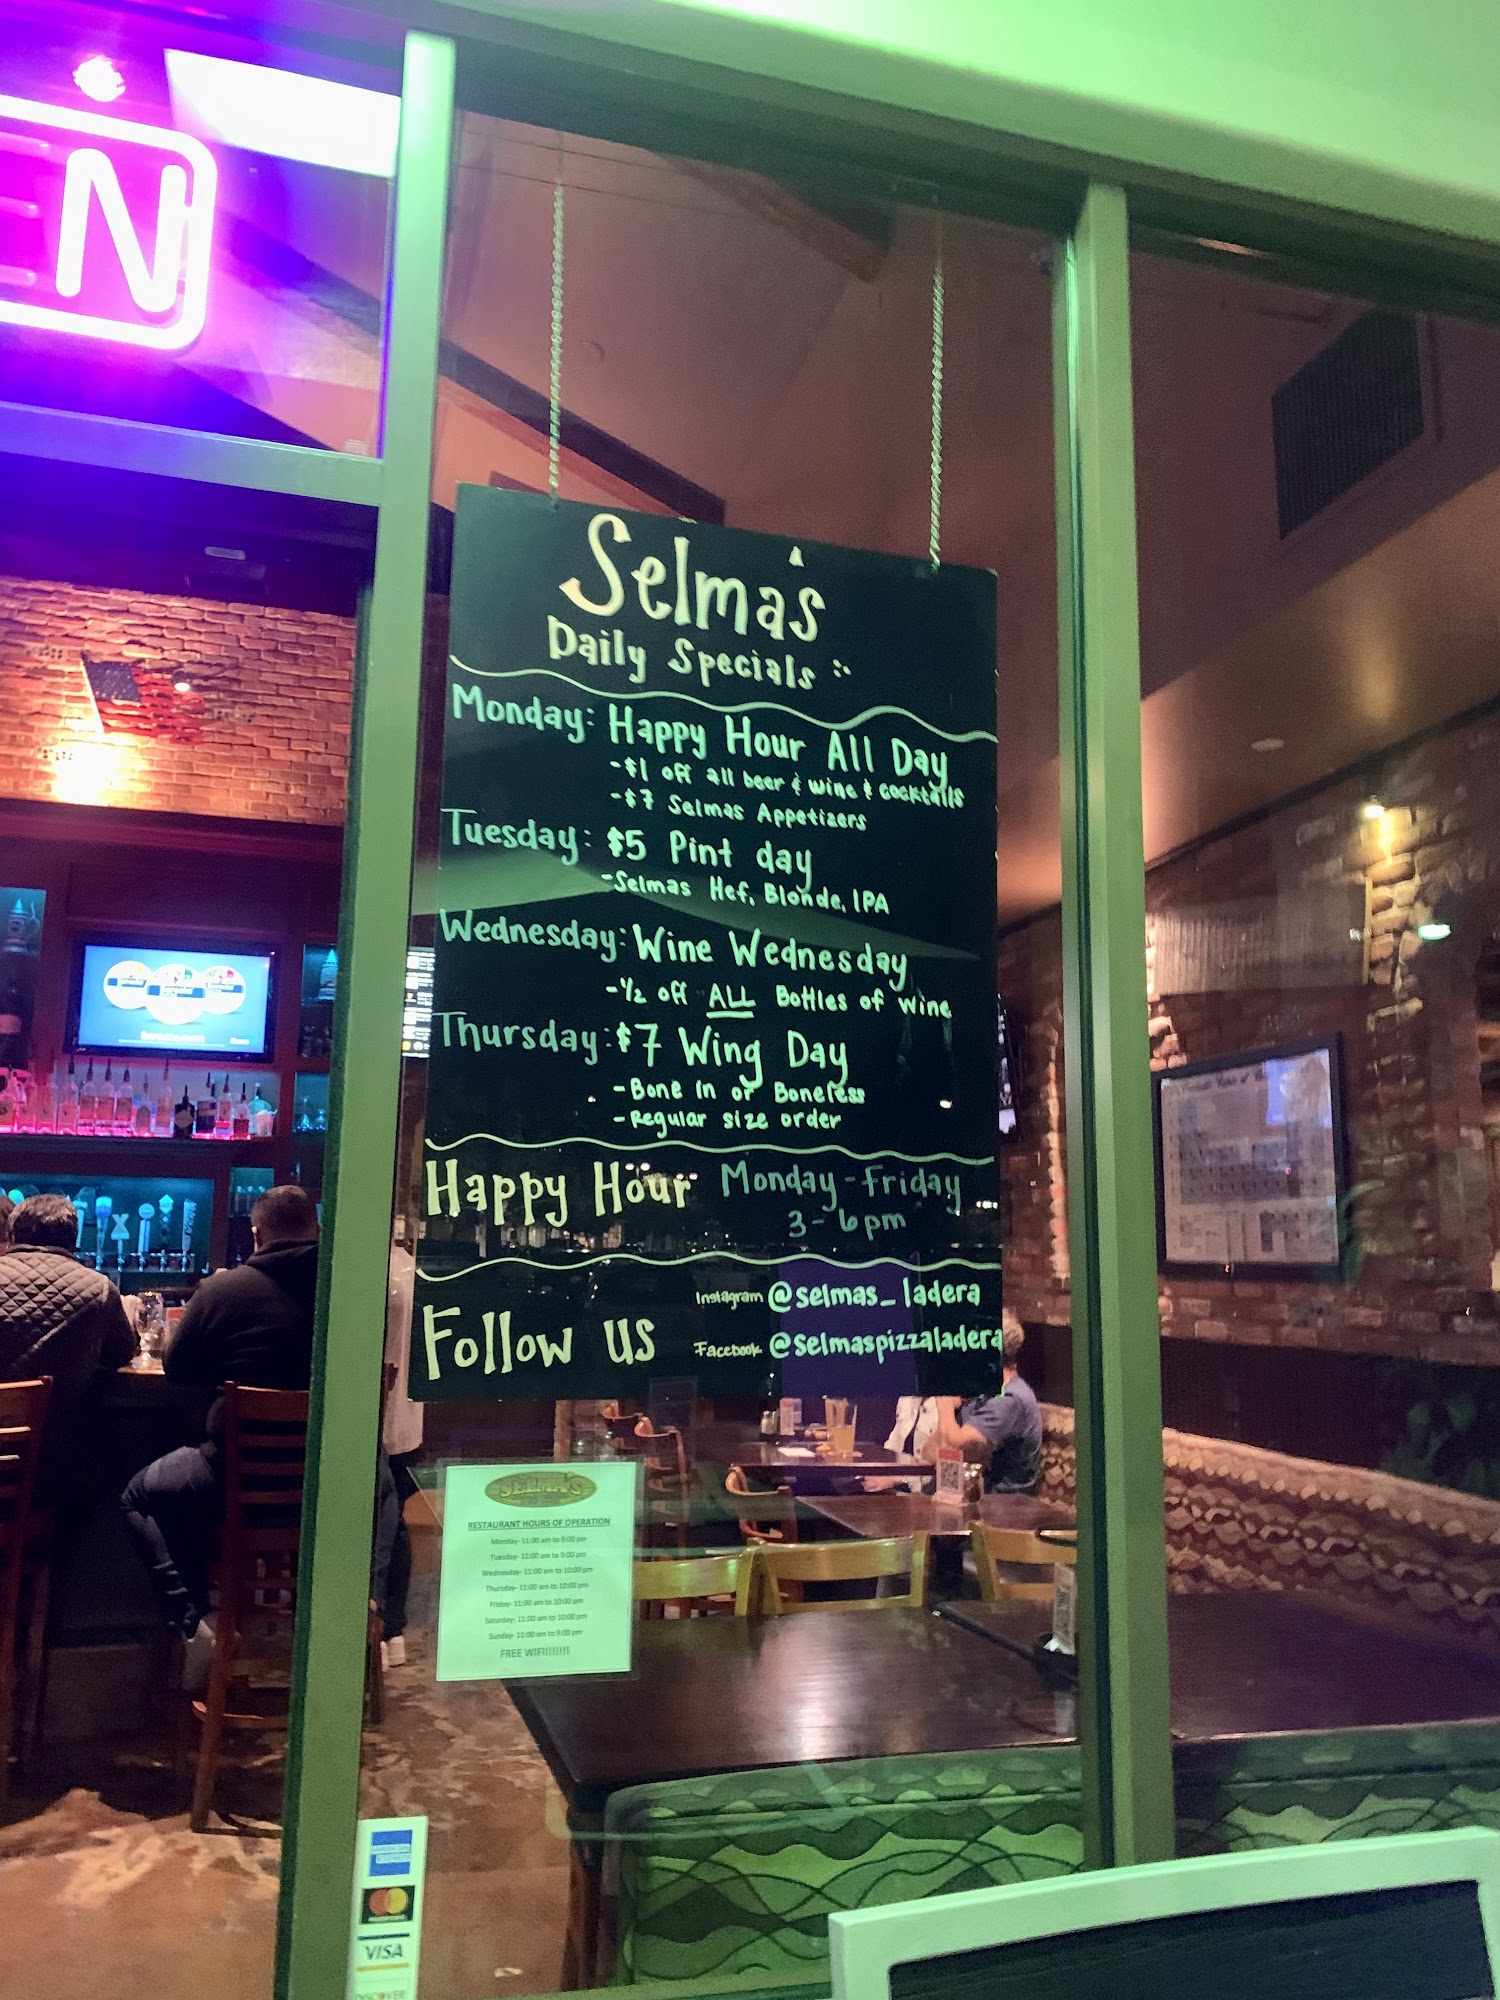 N
Selma's
Daily Specials
Monday: Happy Hour All Day
-$1 off all beer & wine & cocktails
-$7 Selmas Appetizers
Tuesday: $5 Pint day
-Selmas Hef, Blonde, IPA
Wednesday: Wine Wednesday
-1/2 off ALL Bottles of wine
Thursday: $7 Wing Day
-Bone In or Boneless
-Regular size order
Happy Hour Monday-Friday
3-6pm
Follow us
Instagram @selmas_ladera
Facebook @selmaspizzaladera
SELMA'S
RESTAURANT HOURS OF OPERATION
Monday- 11:00 am to 9:00 pm
Tuesday- 11:00 am to 9:00 pm
Wednesday- 11:00 am to 10:00 pm
Thursday- 11:00 am to 10:00 pm
Friday- 11:00 am to 10:00 pm
Saturday- 11:00 am to 10:00 pm
Sunday- 11:00 am to 9:00 pm
FREE WIFI!!!!!!!!
AMERICAN EXPRESS
VISA
DISCOVER